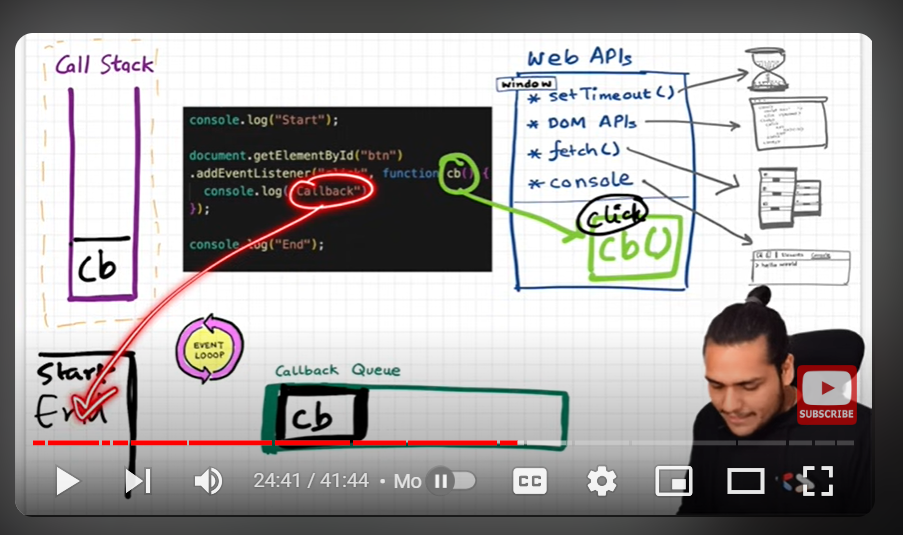 Call Stack
cb
console.log("Start");
document.getElementById("btn")
.addEventListener("click", function cb() {
console.log("Callback")
});
console.log("End");
Web APIs
window
* setTimeout()
* DOM APIs
* fetch()
* console
click
cb()
> hello world
Start
End
EVENT
LOOOP
Callback Queue
cb
SUBSCRIBE
24:41 / 41:44 • Mo
CC